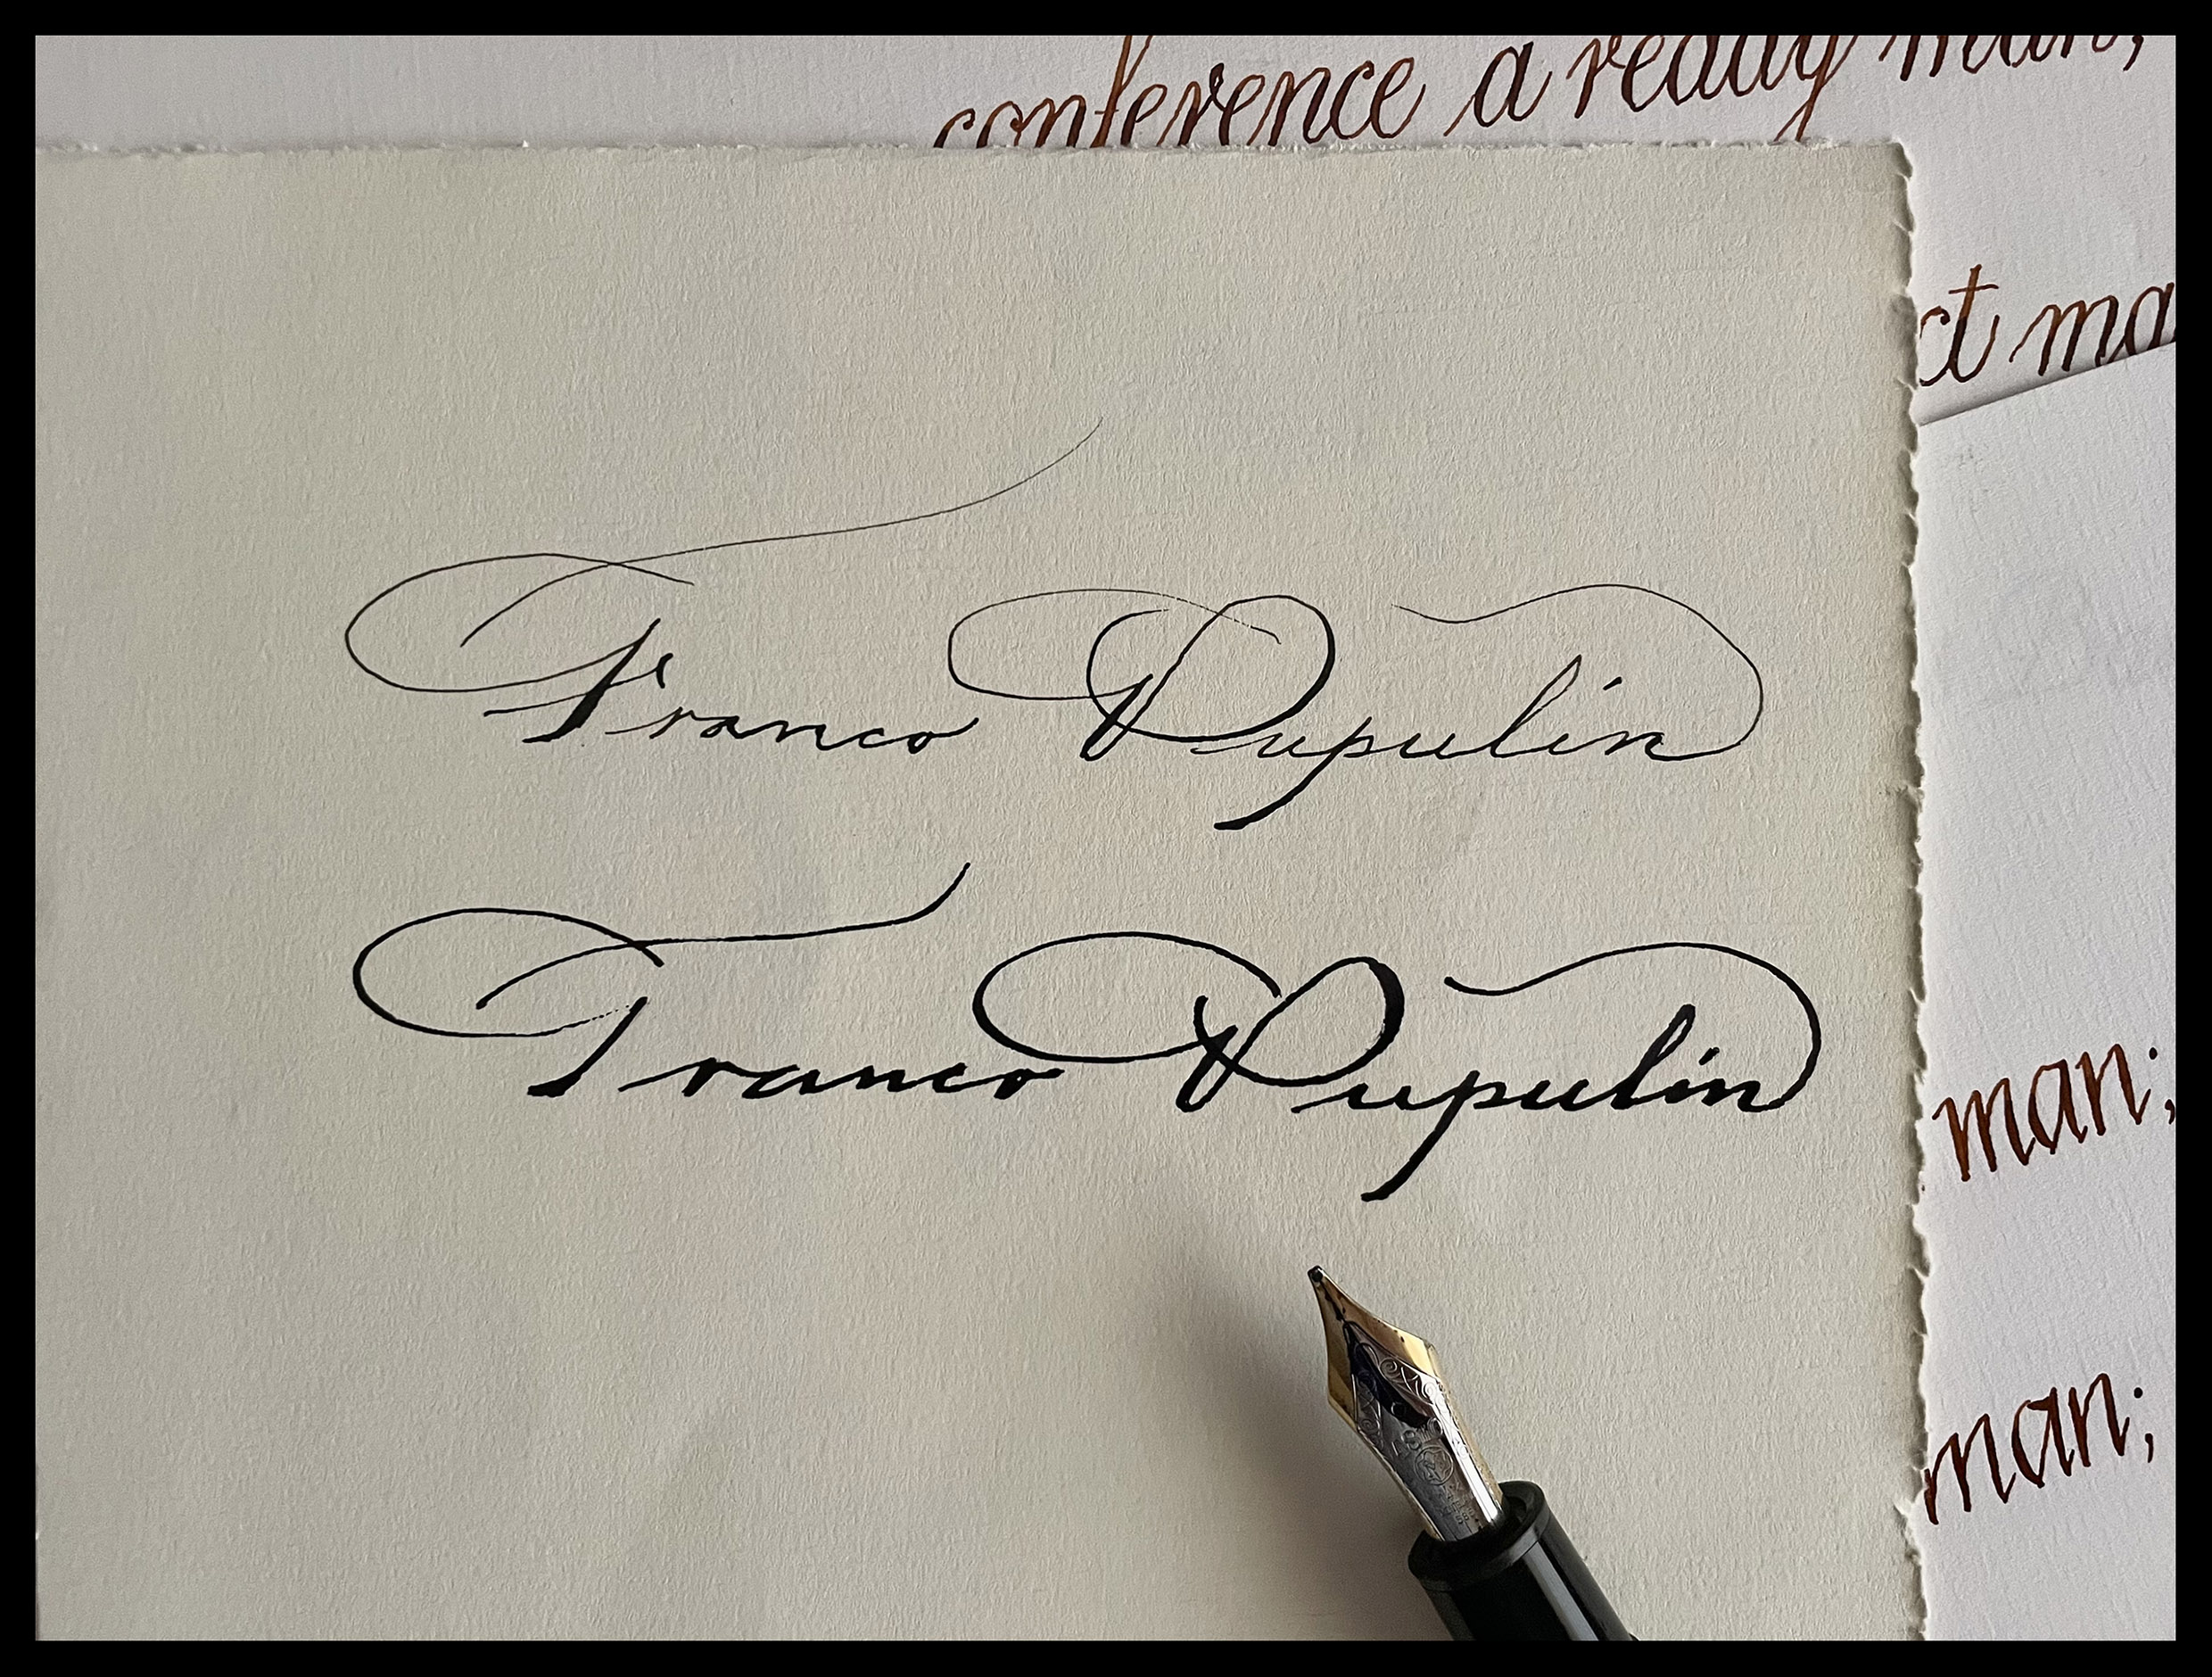 conference a ready man;
ct ma
Franco Pupulin
Franco Pupulin
man;
man;